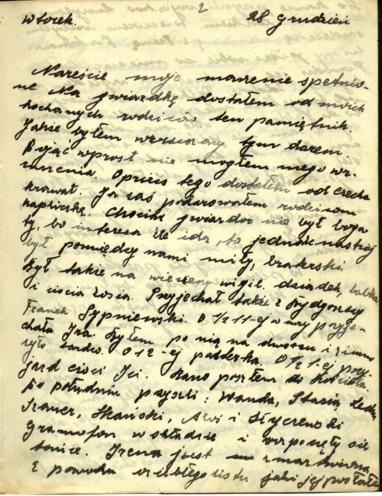 2
Wtorek. 28 grudzień
Nareście moje marzenie spełnio-
ne Na gwiazdkę dostałem od moich
kochanych rodziców ten pamiętnik.
Jakie byłem wzruszony tym darem.
Bojąc wprost nie mogłem mego wz-
ruszenia. Oprócz tego dostałem od Czecha
krawat. Ja zaś podarowałem rodzicom
papiroską. Chociaż gwiazdor nie był boga
ty, bo interesa źle idą, to jednak nastrój
był pomiędzy nami miły, braterski
Był także na wieczerzy wigil. dziadek, babka
i ciocia Zosia. Przyjechał także z Bydgoszczy
Franek Sypniewski. O ½ 11-ej w nocy przyje-
chała Ira. Byłem po nią na dworcu i zimno
było bardzo. O 12-ej pasterka. O ½ 1-ej przy-
jazd cioci Jci. Rano poszłem do kościoła.
Po południu przyszli: Wanda, Stasia,
Franer, Skański, Alwi i Styczewski
gramofon w składzie i rozpoczęły się
tańce. Irena jest zmartwiona
z powodu oziębłego listu jaki jej posłał